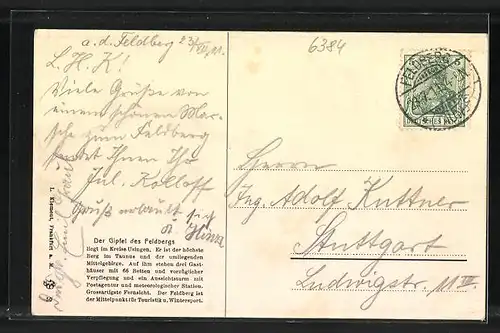 a. d. Feldberg 23/VII.11.
6384
L. H. K!
Viele Grüße von
einem schönen Mar-
sche zum Feldberg
sendet Ihnen Ihr
Jul. Kolloff
Gruß erlaubt sich
Herrn
Ing. Adolf Kuttner
Stuttgart
Ludwigstr. 11 III.
FELDBERG
5
DEUTSCHES REICH
Der Gipfel des Feldbergs
liegt im Kreise Usingen. Er ist der höchste
Berg im Taunus und der umliegenden
Mittelgebirge. Auf ihm stehen drei Gast-
häuser mit 66 Betten und vorzüglicher
Verpflegung und ein Aussichtsturm mit
Postagentur und meteorologischer Station.
Grossartigste Fernsicht. Der Feldberg ist
der Mittelpunkt für Touristik u. Wintersport.
L. Klement, Frankfurt a. M.